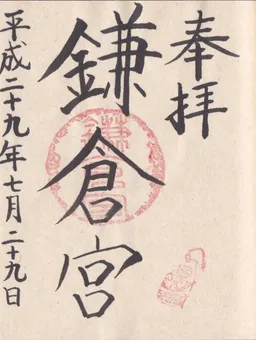 奉拝
鎌倉宮
平成二十九年七月二十九日